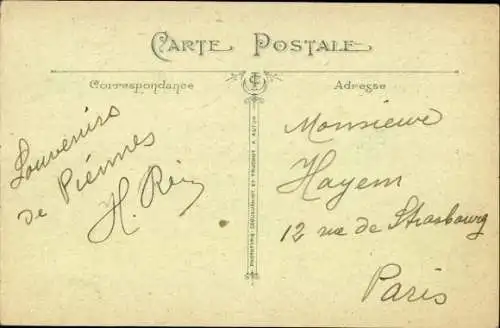 CARTE POSTALE
Correspondance
Adresse
Souvenirs
de Piennes
H. Rein
Monsieur
Hayem
12 rue de Strasbourg
Paris